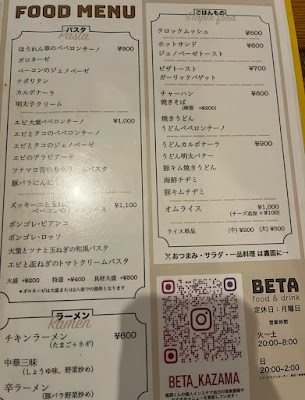 FOOD MENU
パスタ
Pasta
ほうれん草のペペロンチーノ ¥900
ボロネーゼ
ベーコンのジェノベーゼ
ナポリタン
カルボナーラ
明太子クリーム
エビと大葉ペペロンチーノ ¥1,000
エビとタコのペペロンチーノ
エビとタコのジェノベーゼ
エビのアラビアータ
パスタ
豚バラにんに
ズッキーニと ¥1,100
ベーコンの ソース
ボンゴレ・ビアンコ
ボンゴレ・ロッソ
大葉とツナと玉ねぎの和風パスタ
エビと玉ねぎのトマトクリームパスタ
大盛 +¥200 特盛 +¥400 具材大盛 +¥300
ラーメン
Ramen
チキンラーメン ¥600
(たまごネギ)
中華三昧
(しょうゆ味、野菜炒め)
辛ラーメン
(豚バラ野菜炒め)
ごはんもの
Staple food
クロックムッシュ ¥800
ホットサンド ¥600
ジェノベーゼトースト
ピザトースト ¥700
ガーリックバゲット
チャーハン ¥800
焼きそば
焼きうどん
うどんペペロンチーノ
うどんカルボナーラ ¥900
うどん明太バター
豚キム焼きうどん
海鮮チヂミ
豚キムチヂミ
オムライス ¥1,000
(チーズ追加+¥100)
ライス単品 (中) ¥200 (大) ¥300
※おつまみ・サラダ・一品料理 は裏面に→
BETA_KAZAMA
BETA
food & drink
定休日：月曜日
営業時間
火―土
20:00–2:00
日
20:00–